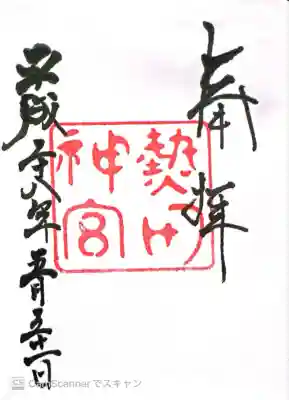 奉拝
熱田神宮
平成二十八年 月 日
CS CamScannerでスキャン